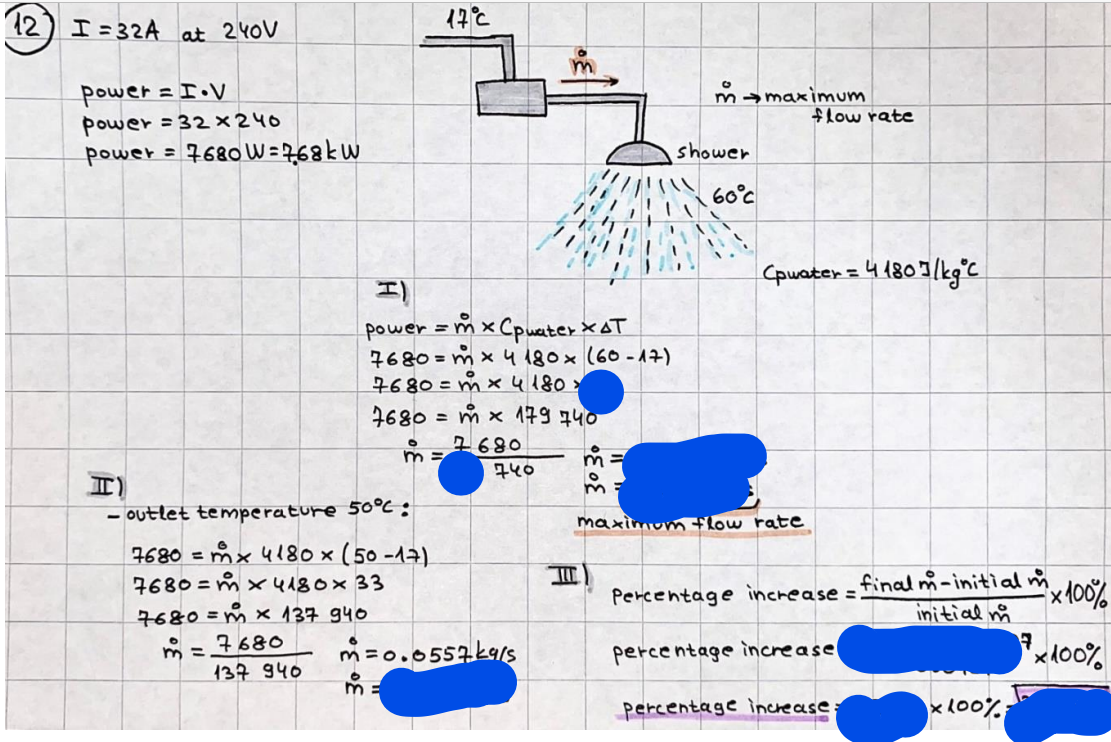 12 I = 32A at 240V
power = I·V
power = 32 × 240
power = 7680 W = 7,68 kW
17°C
ṁ
ṁ → maximum
flow rate
shower
60°C
Cpwater = 4 180 J/kg°C
I)
power = ṁ × Cpwater × ΔT
7680 = ṁ × 4 180 × (60 - 17)
7680 = ṁ × 4 180 ×
7680 = ṁ × 179 740
ṁ = 7 680
740
ṁ =
ṁ =
maximum flow rate
II)
- outlet temperature 50°C :
7680 = ṁ × 4180 × (50 - 17)
7680 = ṁ × 4180 × 33
7680 = ṁ × 137 940
ṁ = 7680
137 940
ṁ = 0.0557 kg/s
ṁ =
III)
percentage increase = final ṁ - initial ṁ × 100%
initial ṁ
percentage increase 7 × 100%
percentage increase = × 100% =